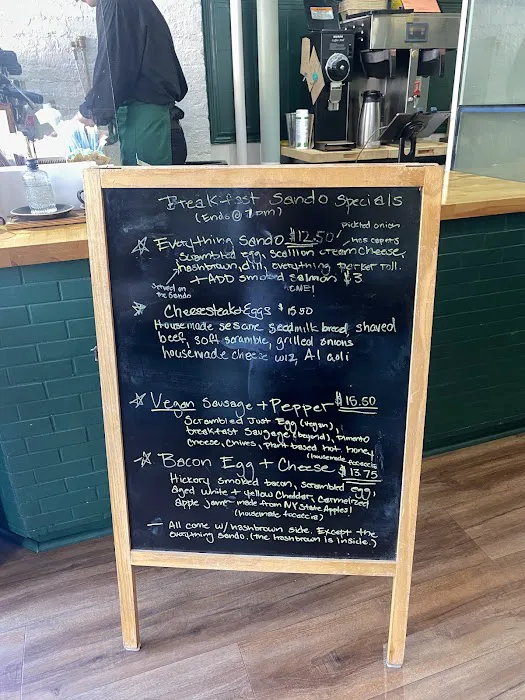 Breakfast Sando Specials
(Ends @ 7pm)
Everything Sando $12.50
pickled onion
has capers
scrambled egg, scallion cream cheese,
hashbrown, dill, everything parker roll.
+ ADD smoked salmon $3
served on
the Sando
Cheesesteak+Eggs $15.50
Housemade sesame seedmilk bread, shaved
beef, soft scramble, grilled onions
housemade cheese wiz, A1 aoli
Vegan Sausage + Pepper $15.50
Scrambled Just Egg (vegan),
breakfast Sausage (beyond), pimento
cheese, chives, plant based hot honey
(housemade focaccia
Bacon Egg + Cheese $13.75
Hickory smoked bacon, scrambled egg,
aged white + yellow cheddar, carmelized
apple jam - made from NY State Apples!
(housemade focaccia)
— All come w/ hashbrown side. Except the
everything sando. (the hashbrown is inside.)